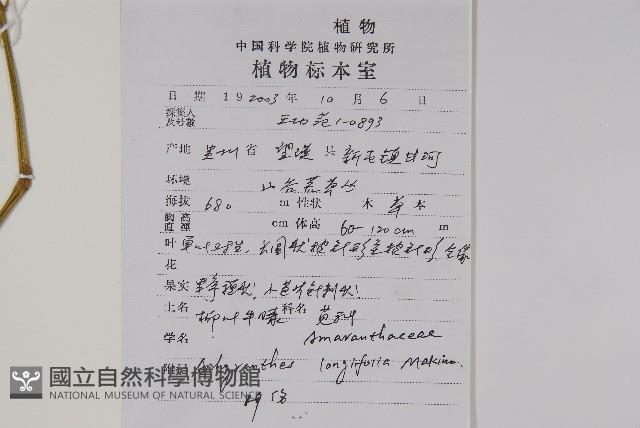 植物
中国科学院植物研究所
植物标本室
日期 19 2003 年 10 月 6 日
採集人及号數 1-0893
产地 贵州 省 望谟 县 新屯镇
环境 山谷荒草丛
海拔 680 m 性状 木 草 本
胸高直徑 cm 体高 60-120 cm m
叶 单叶对生, 长圆状披针形至披针形 全缘
花
果实
土名 柳叶牛膝 科名 苋科
学名 Amaranthaceae
附記 Achyranthes longifolia Makino.
國立自然科學博物館
NATIONAL MUSEUM OF NATURAL SCIENCE